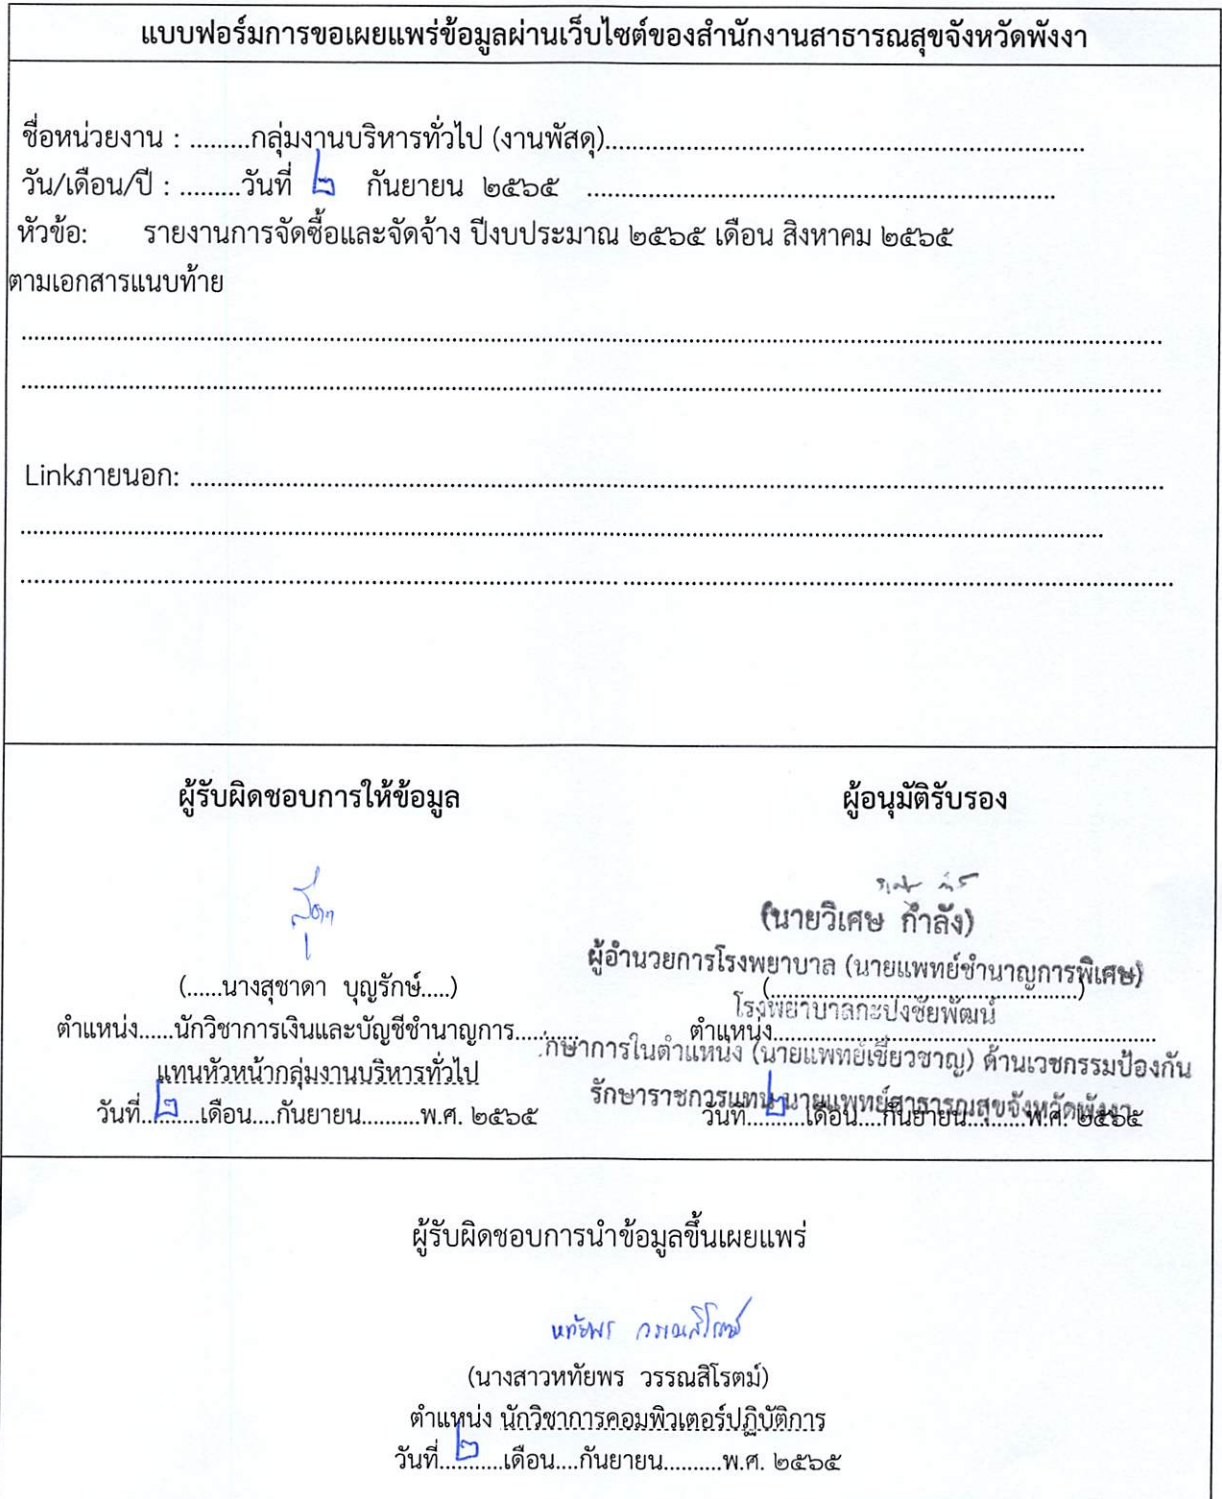 แบบฟอร์มการขอเผยแพร่ข้อมูลผ่านเว็บไซต์ของสำนักงานสาธารณสุขจังหวัดพังงา
ชื่อหน่วยงาน : .........กลุ่มงานบริหารทั่วไป (งานพัสดุ)........................................................................
วัน/เดือน/ปี : .........วันที่ ๒ กันยายน ๒๕๖๕ ......................................................................
หัวข้อ: รายงานการจัดซื้อและจัดจ้าง ปีงบประมาณ ๒๕๖๕ เดือน สิงหาคม ๒๕๖๕
ตามเอกสารแนบท้าย
Linkภายนอก: ....................................................................................................
ผู้รับผิดชอบการให้ข้อมูล
สุชาดา
(......นางสุชาดา บุญรักษ์.....)
ตำแหน่ง......นักวิชาการเงินและบัญชีชำนาญการ...........
แทนหัวหน้ากลุ่มงานบริหารทั่วไป
วันที่..๒.....เดือน....กันยายน..........พ.ศ. ๒๕๖๕
ผู้อนุมัติรับรอง
(นายวิเศษ กำลัง)
ผู้อำนวยการโรงพยาบาล (นายแพทย์ชำนาญการพิเศษ)
(..............................................)
โรงพยาบาลกะปงชัยพัฒน์
ตำแหน่ง..........................................................
กษาการในตำแหน่ง (นายแพทย์เชี่ยวชาญ) ด้านเวชกรรมป้องกัน
รักษาราชการแทน นายแพทย์สาธารณสุขจังหวัดพังงา
วันที่....๒.....เดือน....กันยายน..........พ.ศ. ๒๕๖๕
ผู้รับผิดชอบการนำข้อมูลขึ้นเผยแพร่
หทัยพร วรรณสิโรตม์
(นางสาวหทัยพร วรรณสิโรตม์)
ตำแหน่ง นักวิชาการคอมพิวเตอร์ปฏิบัติการ
วันที่...๒.......เดือน....กันยายน..........พ.ศ. ๒๕๖๕